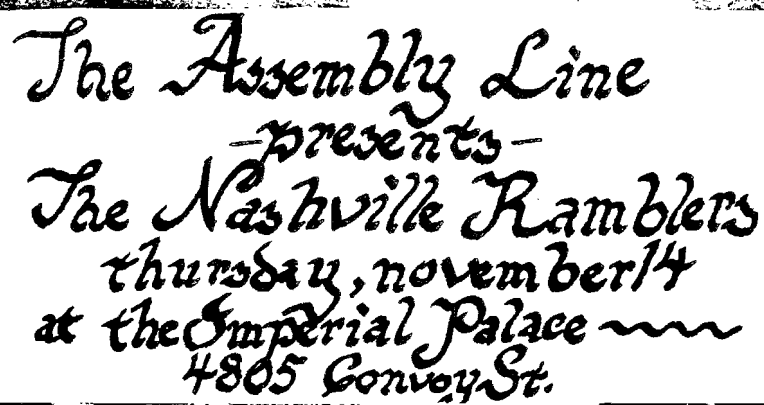 The Assembly Line
-presents-
The Nashville Ramblers
thursday, november 14
at the Imperial Palace
4805 Convoy St.